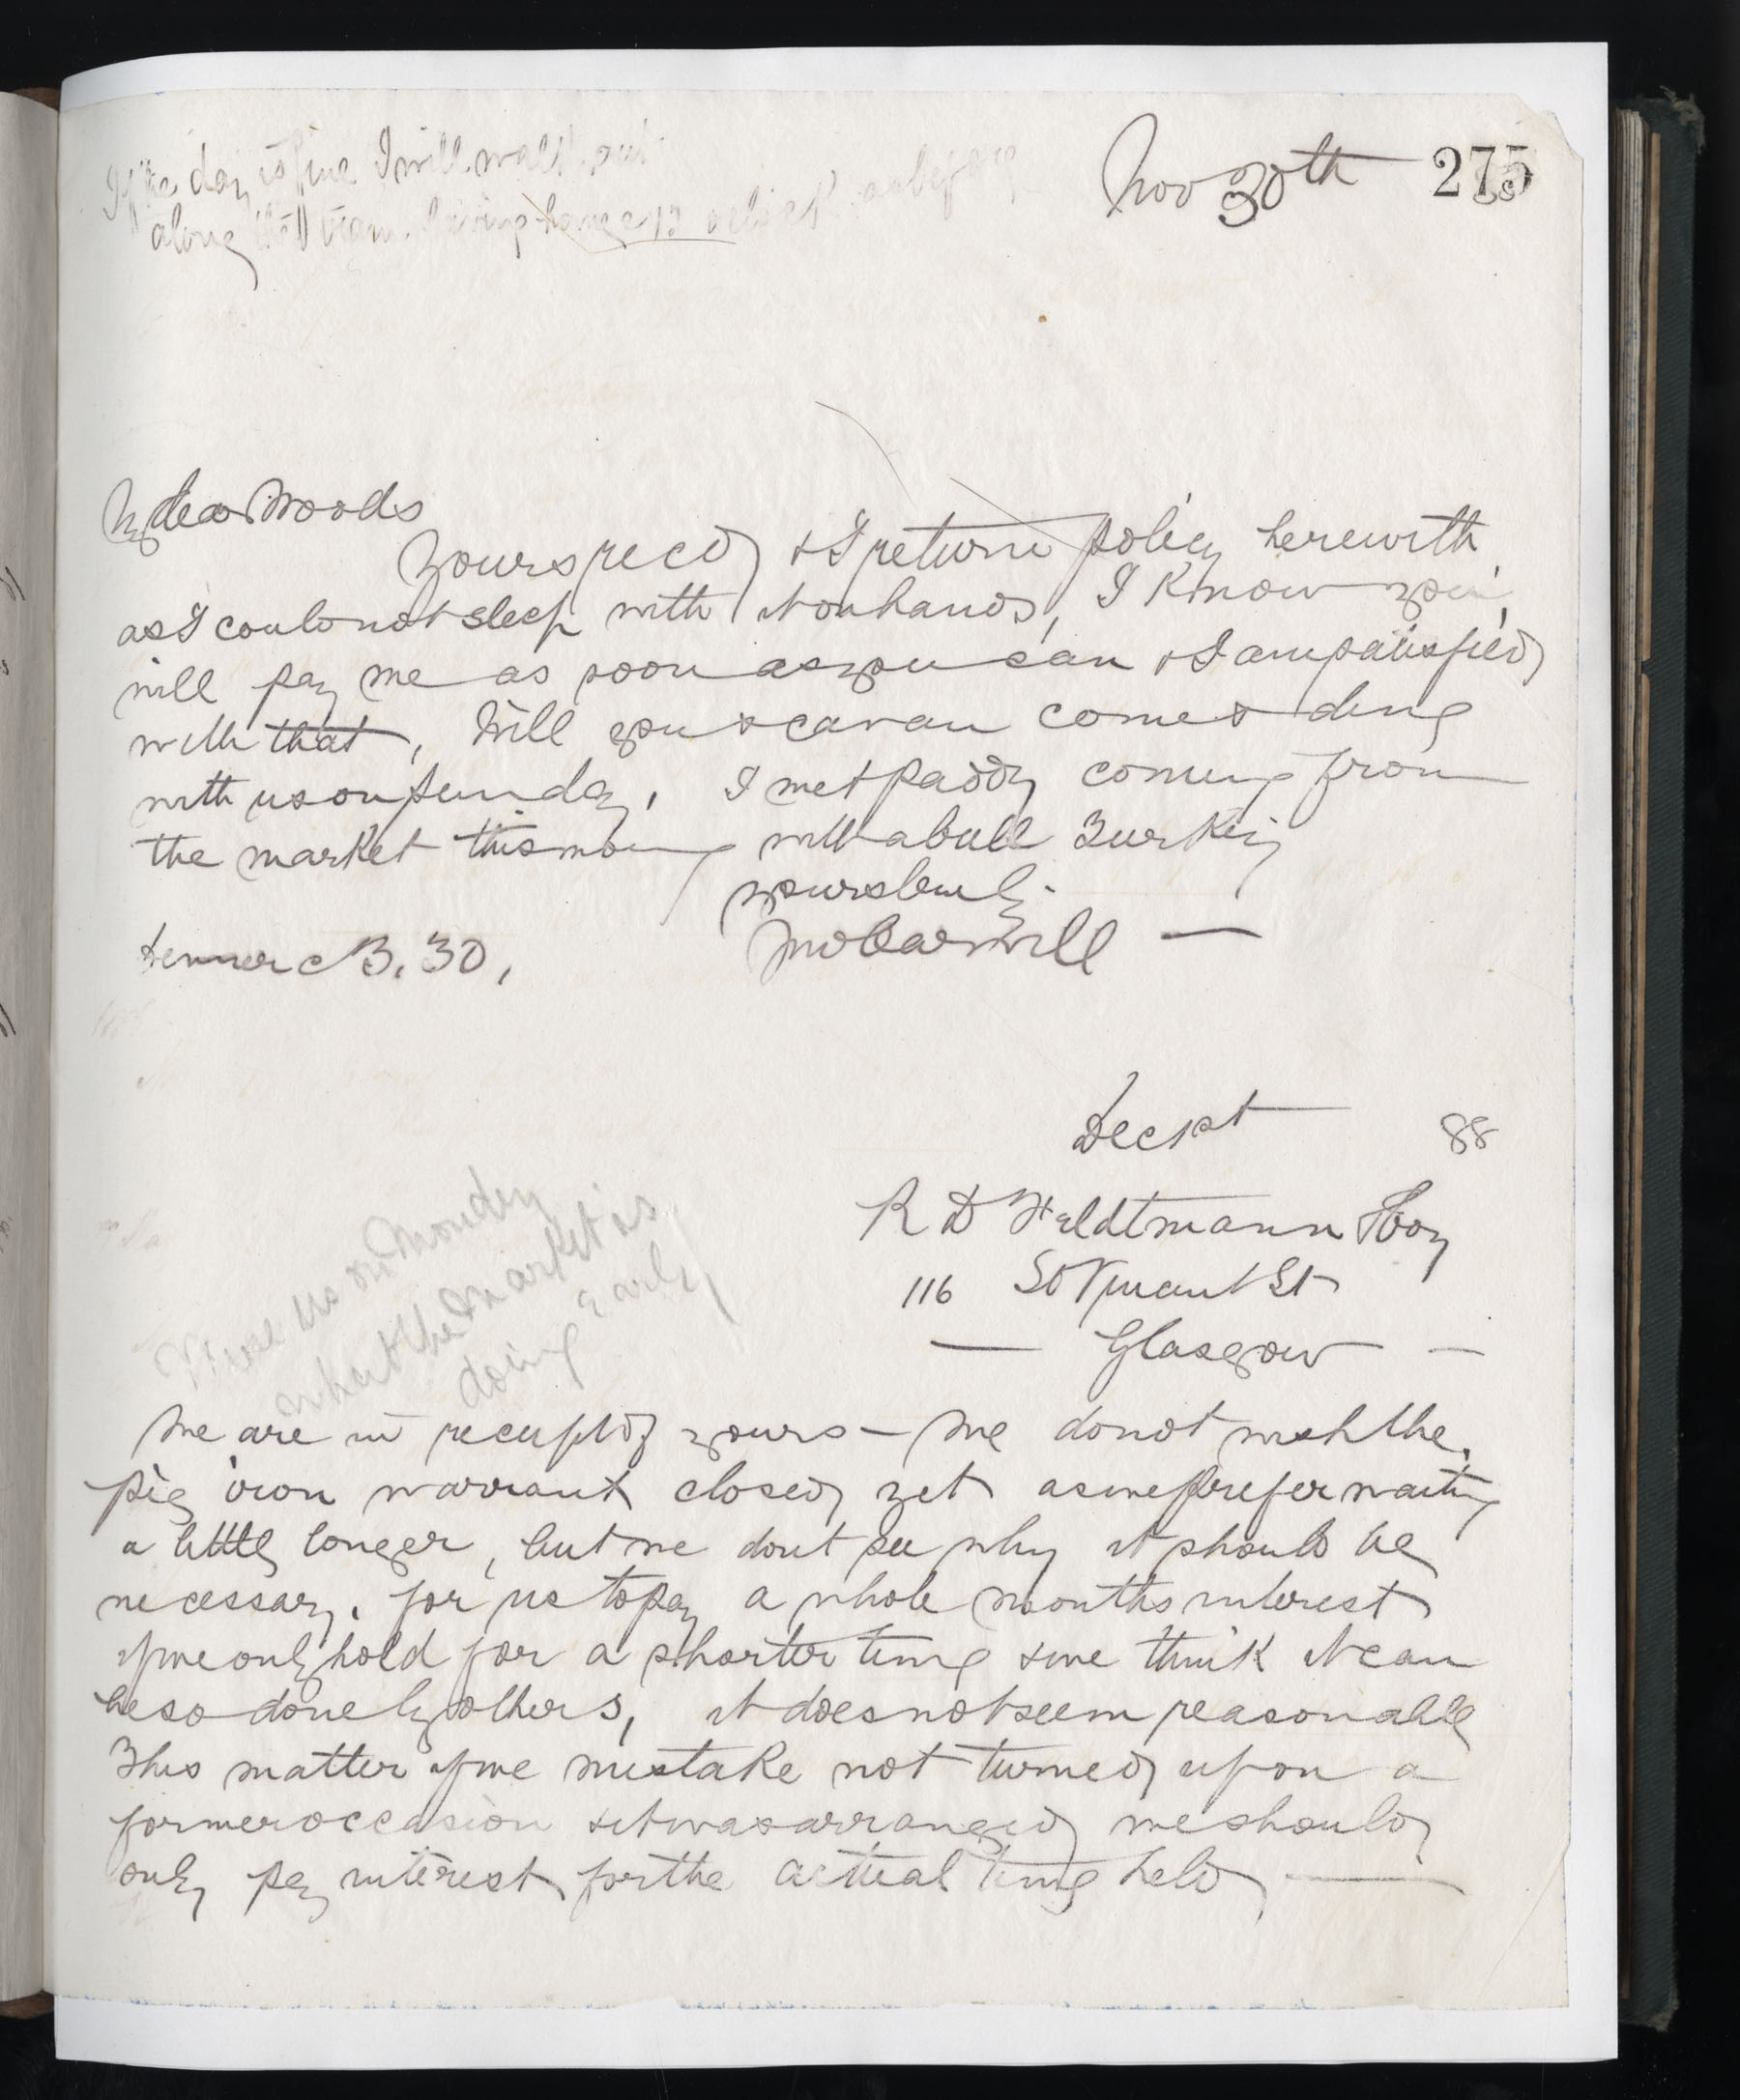 If the day is fine I will walk out
along the tram
Nov 30th 275
My dear Woods
Yours recd & I return policy herewith
as I could not sleep with it on hands, I know you
will pay me as soon as you can & I am satisfied
with that, Will you & Cavan come & dine
with us on Sunday, I met Paddy coming from
the market this morng with a bull Turkey
yours truly
Dinner 3.30,
Dec 1st 88
R D Feldtmann Esq
116 St Vincent St
Glasgow
Wire us on Monday
what the market is
doing early
We are in receipt of yours – we do not wish the
pig iron warrant closed yet as we prefer waiting
a little longer, but we dont see why it should be
necessary for us to pay a whole months interest
if we only hold for a shorter time & we think it can
be so done by others, it does not seem reasonable
This matter if we mistake not turned upon a
former occasion & it was arranged we should
only pay interest for the actual time held